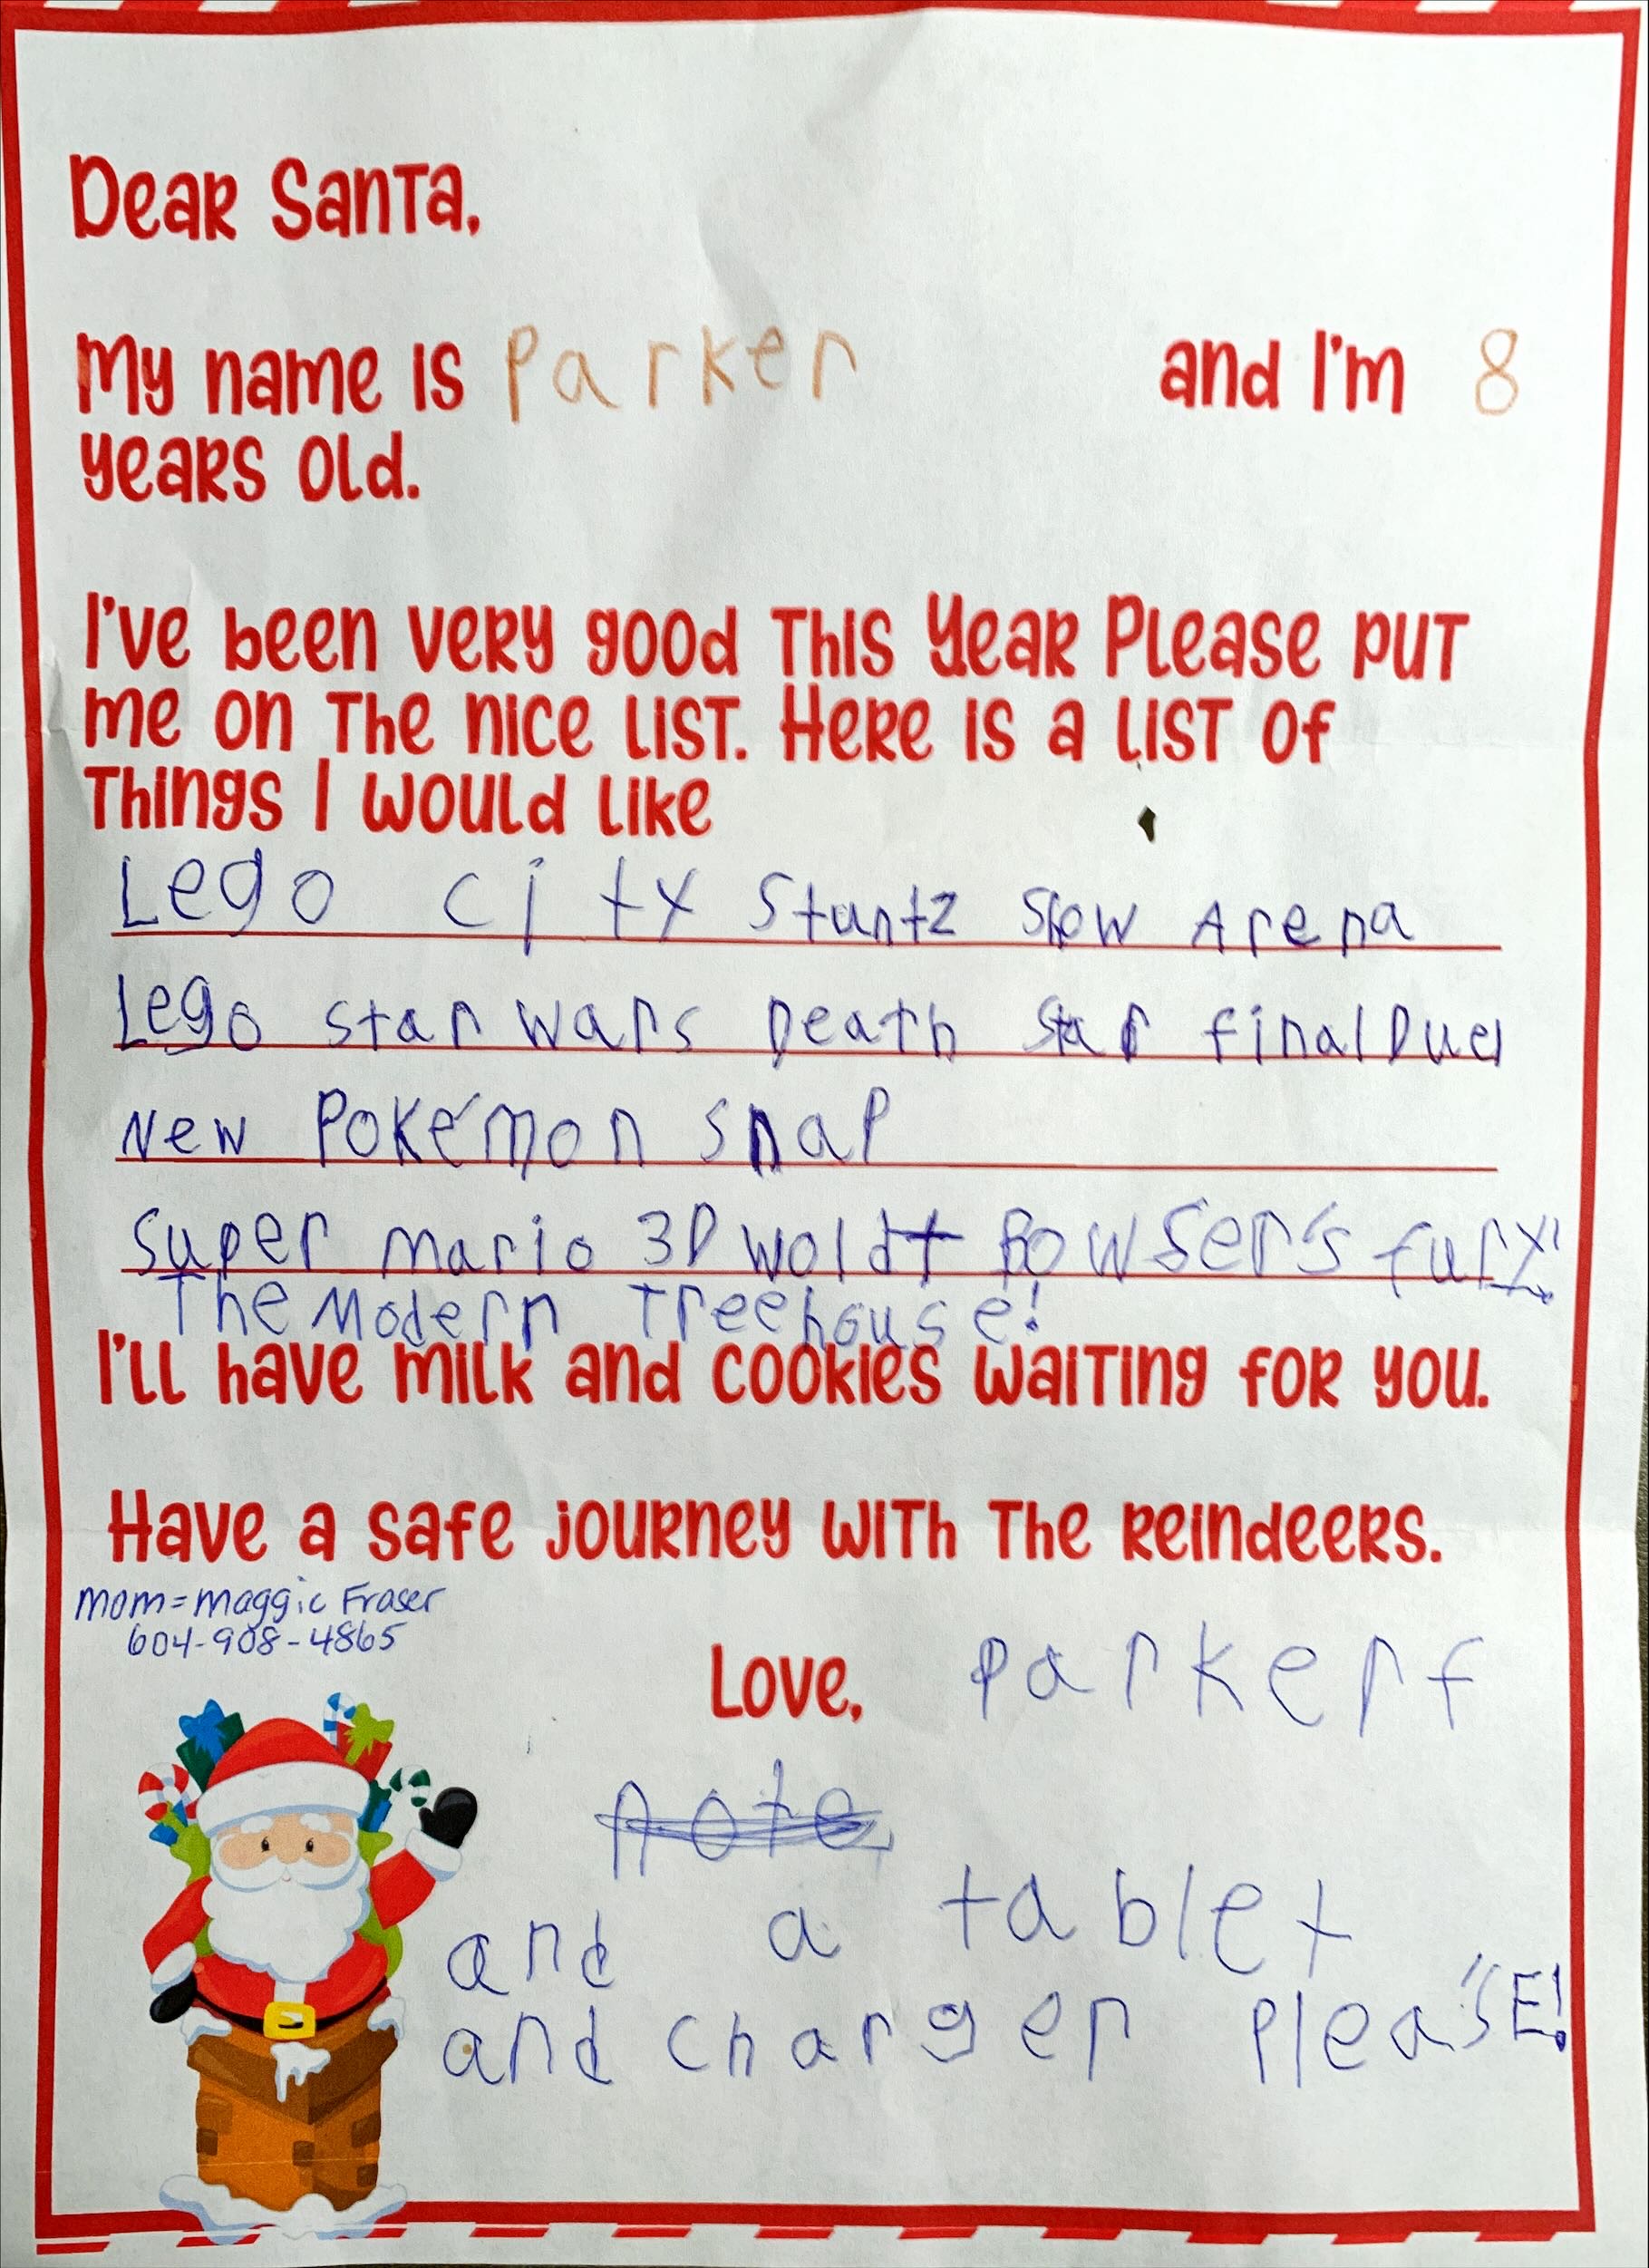 Dear Santa,
My name is Parker and I'm 8
years old.
I've been very good this year Please put
me on the nice list. Here is a list of
things I would like
Lego city stuntz show Arena
Lego star wars Death star final Duel
New Pokémon snap
super mario 3D wold + Bowser's fury!
The Modern Treehouse!
I'll have milk and cookies waiting for you.
Have a safe journey with the reindeers.
mom = maggie Fraser
604-908-4865
Love, parker f
note
and a tablet
and charger pleasE!